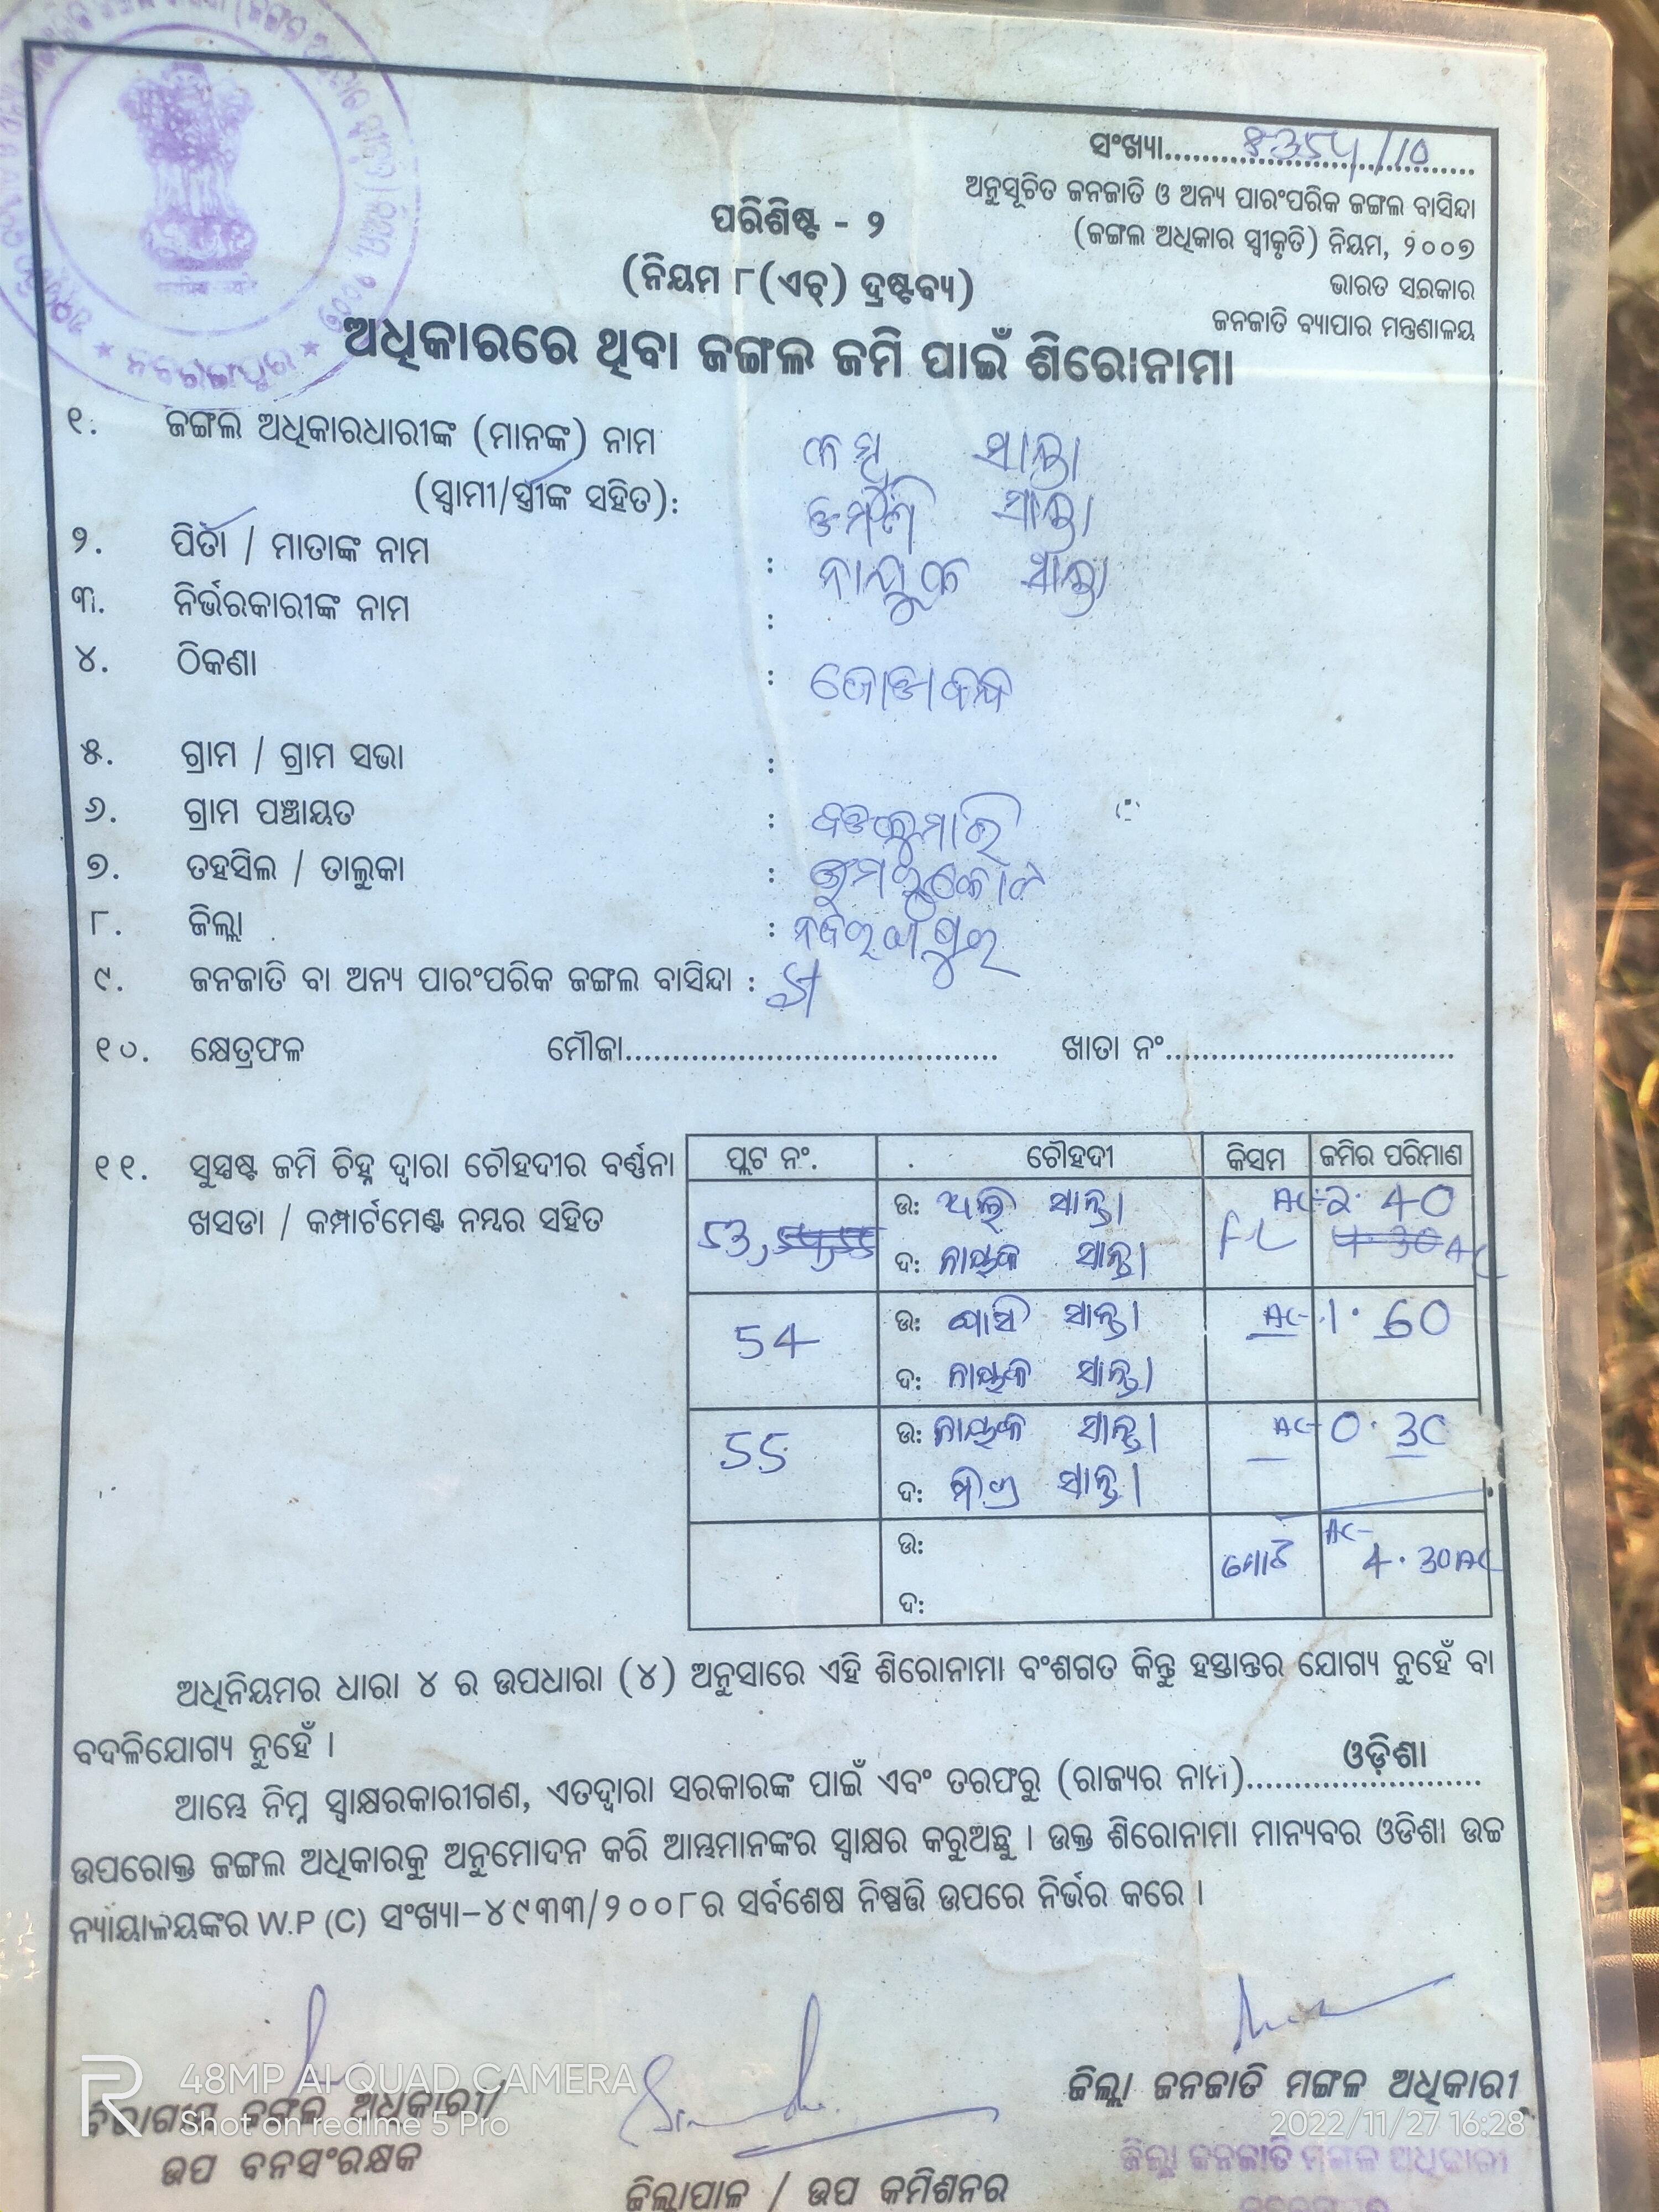 ସଂଖ୍ୟା.................................
ଅନୁସୂଚିତ ଜନଜାତି ଓ ଅନ୍ୟ ପାରଂପରିକ ଜଙ୍ଗଲ ବାସିନ୍ଦା
(ଜଙ୍ଗଲ ଅଧିକାର ସ୍ୱୀକୃତି) ନିୟମ, ୨୦୦୭
ଭାରତ ସରକାର
ଜନଜାତି ବ୍ୟାପାର ମନ୍ତ୍ରଣାଳୟ
ପରିଶିଷ୍ଟ - ୨
(ନିୟମ ୮(ଏଚ୍) ଦ୍ରଷ୍ଟବ୍ୟ)
ଅଧିକାରରେ ଥିବା ଜଙ୍ଗଲ ଜମି ପାଇଁ ଶିରୋନାମା
୧. ଜଙ୍ଗଲ ଅଧିକାରଧାରୀଙ୍କ (ମାନଙ୍କ) ନାମ ସାନ୍ତା
(ସ୍ୱାମୀ/ସ୍ତ୍ରୀଙ୍କ ସହିତ): ସାନ୍ତା
୨. ପିତା / ମାତାଙ୍କ ନାମ : ସାନ୍ତା
୩. ନିର୍ଭରକାରୀଙ୍କ ନାମ :
୪. ଠିକଣା :
୫. ଗ୍ରାମ / ଗ୍ରାମ ସଭା :
୬. ଗ୍ରାମ ପଞ୍ଚାୟତ : ବଡକୁମାରି
୭. ତହସିଲ / ତାଲୁକା :
୮. ଜିଲ୍ଲା : ନବରଙ୍ଗପୁର
୯. ଜନଜାତି ବା ଅନ୍ୟ ପାରଂପରିକ ଜଙ୍ଗଲ ବାସିନ୍ଦା :
୧୦. କ୍ଷେତ୍ରଫଳ ମୌଜା....................................... ଖାତା ନଂ..............................
୧୧. ସୁସ୍ପଷ୍ଟ ଜମି ଚିହ୍ନ ଦ୍ୱାରା ଚୌହଦୀର ବର୍ଣ୍ଣନା
ଖସଡା / କମ୍ପାର୍ଟମେଣ୍ଟ ନମ୍ବର ସହିତ
ପ୍ଲଟ ନଂ. ଚୌହଦୀ କିସମ ଜମିର ପରିମାଣ
53, ଉ: ସାନ୍ତା FL AC-2.40
ଦ: ନାୟକ ସାନ୍ତା 4.30 AC
54 ଉ: ସାନ୍ତା AC-1.60
ଦ: ନାୟକ ସାନ୍ତା
55 ଉ: ନାୟକ ସାନ୍ତା AC-0.30
ଦ: ସାନ୍ତା
ଉ: ମୋଟ AC-4.30 AC
ଦ:
ଅଧିନିୟମର ଧାରା ୪ ର ଉପଧାରା (୪) ଅନୁସାରେ ଏହି ଶିରୋନାମା ବଂଶଗତ କିନ୍ତୁ ହସ୍ତାନ୍ତର ଯୋଗ୍ୟ ନୁହେଁ ବା
ବଦଳିଯୋଗ୍ୟ ନୁହେଁ ।
ଆମ୍ଭେ ନିମ୍ନ ସ୍ୱାକ୍ଷରକାରୀଗଣ, ଏତଦ୍ୱାରା ସରକାରଙ୍କ ପାଇଁ ଏବଂ ତରଫରୁ (ରାଜ୍ୟର ନାମ).........ଓଡ଼ିଶା.........
ଉପରୋକ୍ତ ଜଙ୍ଗଲ ଅଧିକାରକୁ ଅନୁମୋଦନ କରି ଆମ୍ଭମାନଙ୍କର ସ୍ୱାକ୍ଷର କରୁଅଛୁ । ଉକ୍ତ ଶିରୋନାମା ମାନ୍ୟବର ଓଡିଶା ଉଚ୍ଚ
ନ୍ୟାୟାଳୟଙ୍କର W.P (C) ସଂଖ୍ୟା-୪୯୩୩/୨୦୦୮ର ସର୍ବଶେଷ ନିଷ୍ପତ୍ତି ଉପରେ ନିର୍ଭର କରେ ।
ବିଭାଗୀୟ ଜଙ୍ଗଲ ଅଧିକାରୀ/
ଉପ ବନସଂରକ୍ଷକ
ଜିଲ୍ଲାପାଳ / ଉପ କମିଶନର
ଜିଲ୍ଲା ଜନଜାତି ମଙ୍ଗଳ ଅଧିକାରୀ
ଜିଲ୍ଲା ଜନଜାତି ମଙ୍ଗଳ ଅଧିକାରୀ
48MP AI QUAD CAMERA
Shot on realme 5 Pro
2022/11/27 16:28